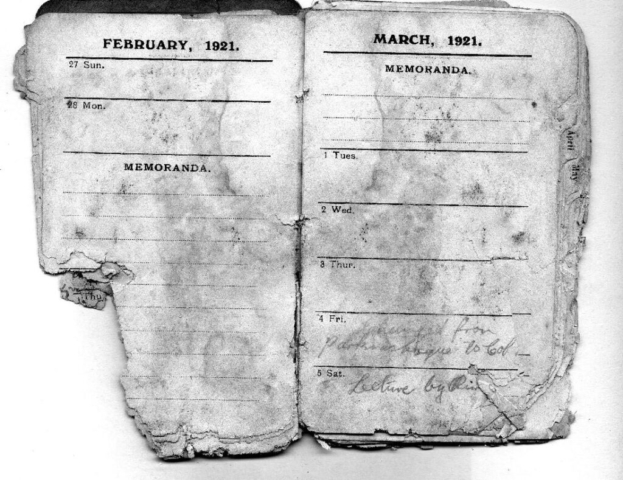 FEBRUARY, 1921.
27 Sun.
28 Mon.
MEMORANDA.
Thu
MARCH, 1921.
MEMORANDA.
1 Tues.
2 Wed.
3 Thur.
4 Fri.
from
to Col
5 Sat.
Lecture by
April
May